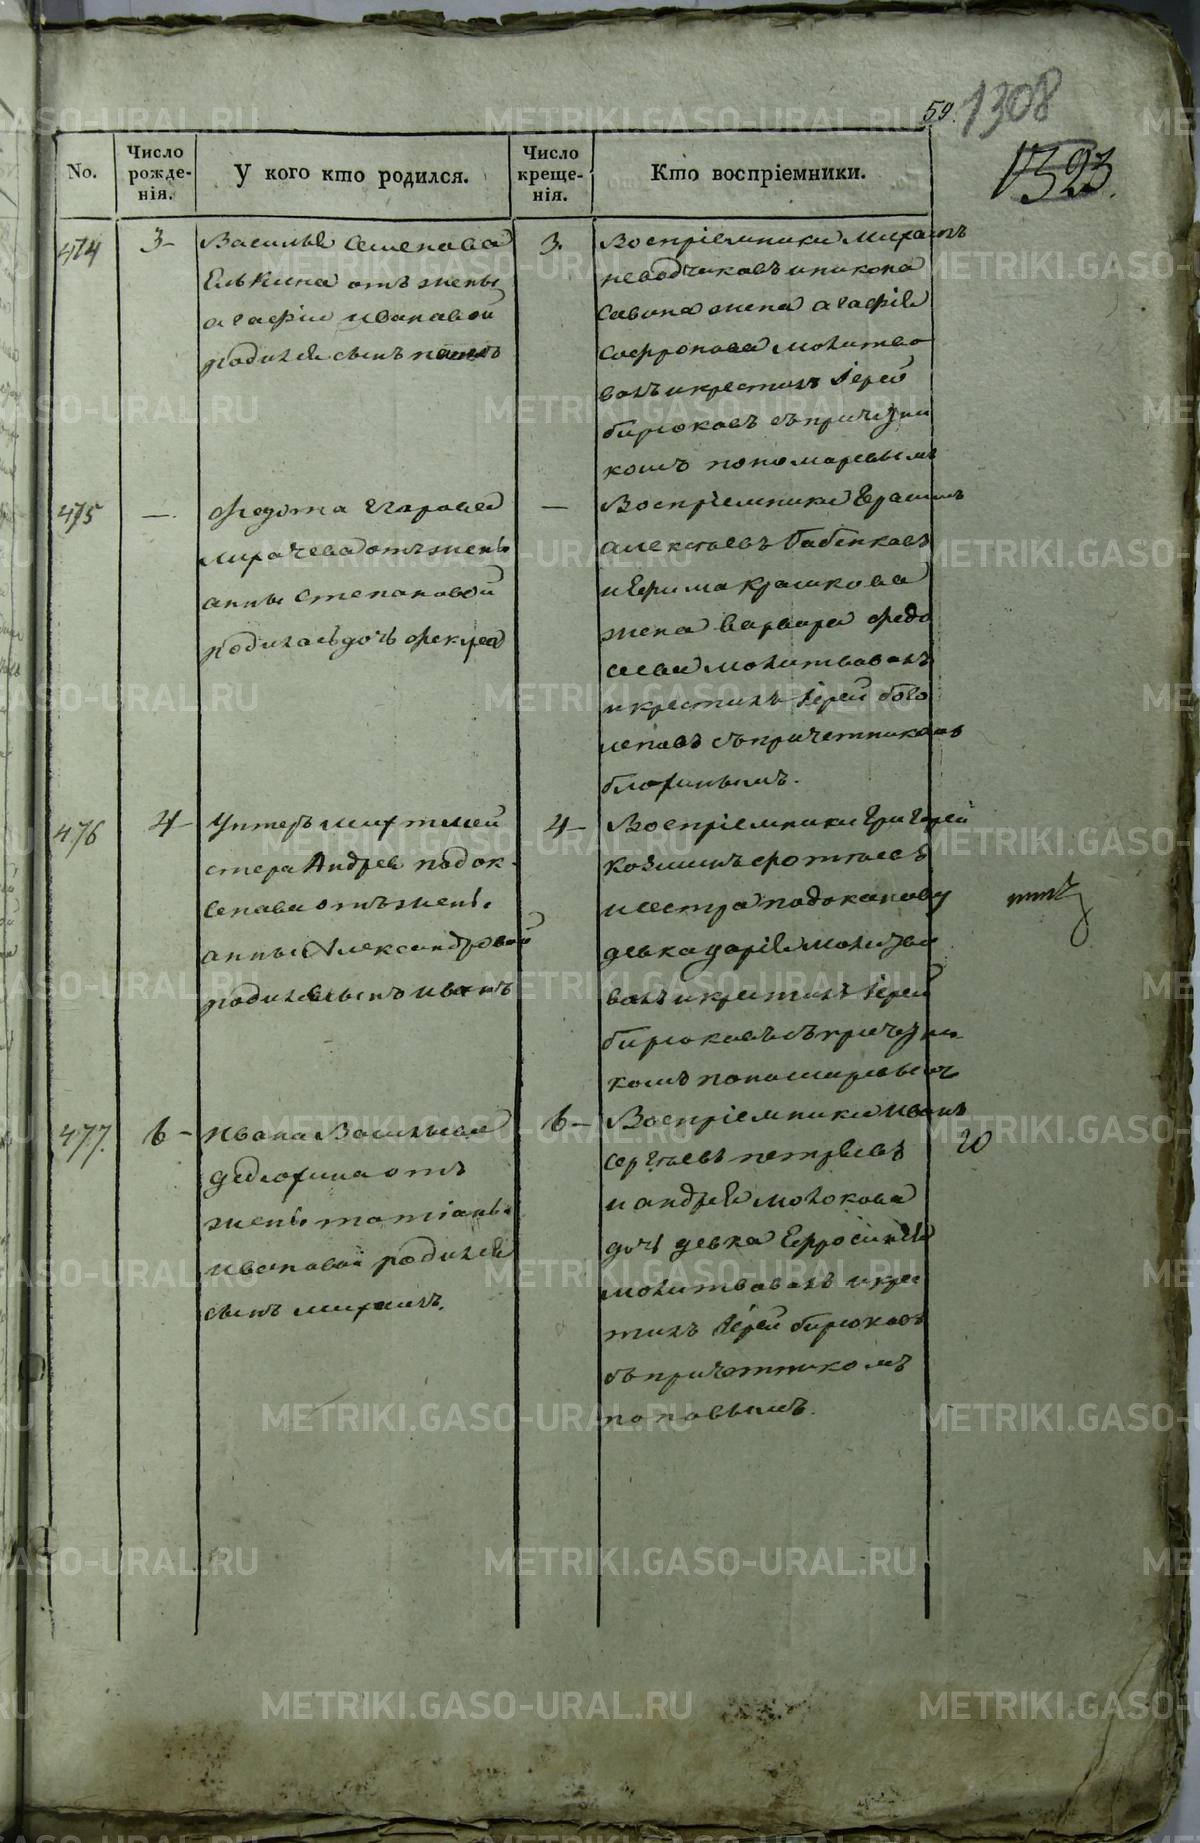 59. 1308
1323.
No.
Число рожде-нія.
У кого кто родился.
Число креще-нія.
Кто воспріемники.
474
3-
Василья Семенова
Елькина отъ жены
агафіи Ивановой
родился сынъ
3.
Воспріемники Михаилъ
неводчиковъ и никона
Савина жена агафія
Софронова молитво
валъ и крестилъ Іерей
бирюковъ съ причетни
комъ пономаревымъ
475
—.
Федота Егорова
мирачева отъ жены
анны Степановой
родилась дочь фекла
—
Воспріемники Герасимъ
алексѣевъ бабенковъ
и Ефима Крашкова
жена варвара федо
сеева молитвовалъ
и крестилъ Іерей бого
леповъ съ причетникомъ
476
4-
Унтеръ шихтмей
стера Андрея подок-
сенова отъ жены
анны Александровой
родился сынъ иванъ
4-
Воспріемники Григорей
козминъ
и сестра
девка дарія молитво
валъ и крестилъ Іерей
бирюковъ съ причетни-
комъ пономаревымъ
477.
6-
Ивана Васильева
дедюхина отъ
жены татіаны
ивановой родился
сынъ михаилъ.
6-
Воспріемники Иванъ
Сергѣевъ петровъ
и андрея молокова
дочь девка Ефросинья
молитвовалъ и крес
тилъ Іерей бирюковъ
съ причетникомъ
поповымъ.
20
METRIKI.GASO-URAL.RU